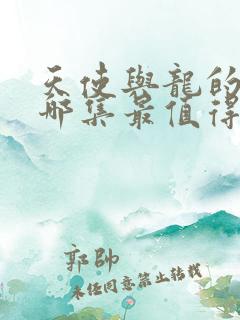 天使與龍的
哪集最值得
郭帥
未經同意禁止轉載